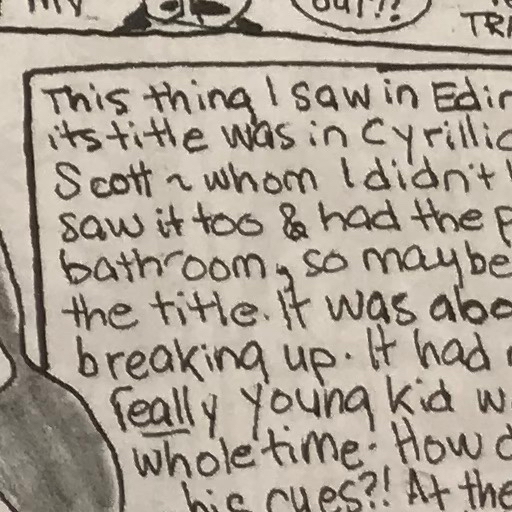 my
out??
TRI
This thing I saw in Edin
its title was in Cyrillic
Scott ~ whom I didn't
saw it too & had the p
bathroom, so maybe
the title. It was abo
breaking up. It had
really young kid w
whole time. How d
his cues?! At the